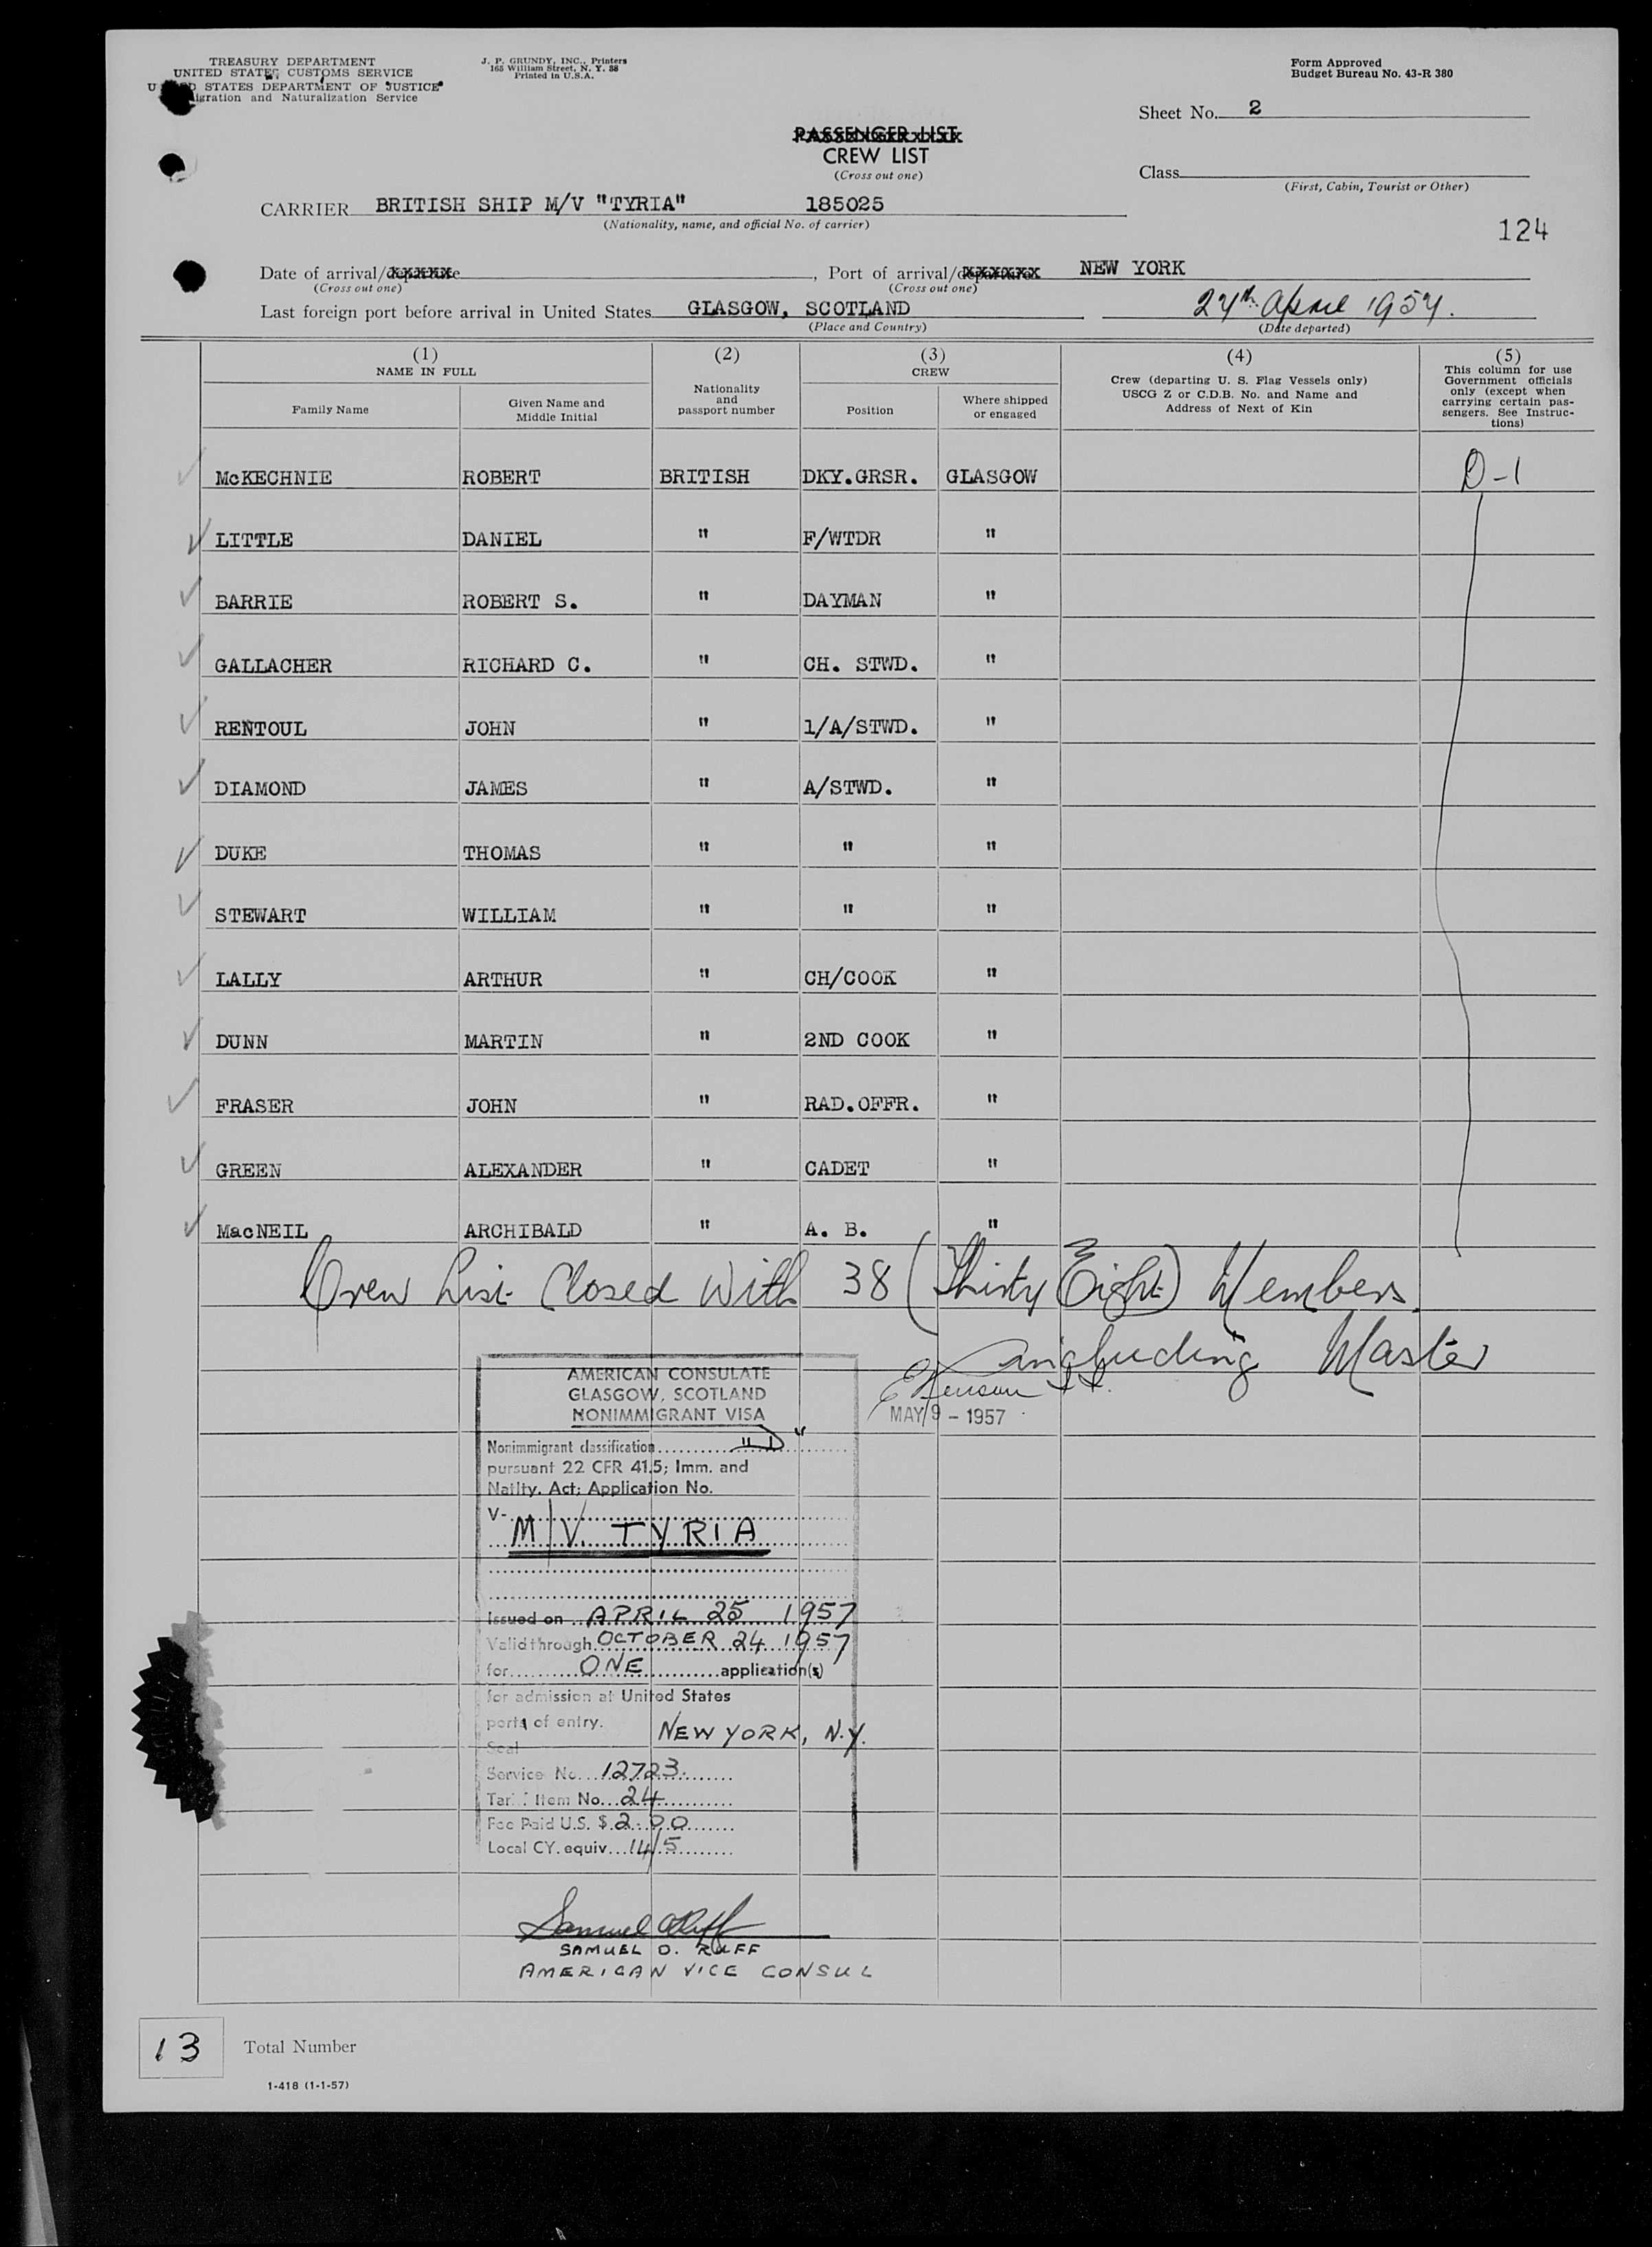 TREASURY DEPARTMENT
UNITED STATES CUSTOMS SERVICE
STATES DEPARTMENT OF JUSTICE
Naturalization Service
J. P. GRUNDY, INC., Printers
165 William Street, N. Y. 38
Printed in U.S.A.
Form Approved
Budget Bureau No. 43-R 380
Sheet No. 2
PASSENGER LIST
CREW LIST
(Cross out one)
Class
(First, Cabin, Tourist or Other)
CARRIER BRITISH SHIP M/V "TYRIA" 185025
(Nationality, name, and official No. of carrier)
124
Date of arrival/departure , Port of arrival/departure NEW YORK
(Cross out one) (Cross out one)
Last foreign port before arrival in United States GLASGOW, SCOTLAND 27th April 1957.
(Place and Country) (Date departed)
(1) (2) (3) (4) (5)
NAME IN FULL
Family Name
Given Name and
Middle Initial
Nationality
and
passport number
CREW
Position
Where shipped
or engaged
Crew (departing U. S. Flag Vessels only)
USCG Z or C.D.B. No. and Name and
Address of Next of Kin
This column for use
Government officials
only (except when
carrying certain pas-
sengers. See Instruc-
tions)
McKECHNIE ROBERT BRITISH DKY.GRSR. GLASGOW D-1
LITTLE DANIEL " F/WTDR "
BARRIE ROBERT S. " DAYMAN "
GALLACHER RICHARD C. " CH. STWD. "
RENTOUL JOHN " 1/A/STWD. "
DIAMOND JAMES " A/STWD. "
DUKE THOMAS " " "
STEWART WILLIAM " " "
LALLY ARTHUR " CH/COOK "
DUNN MARTIN " 2ND COOK "
FRASER JOHN " RAD.OFFR. "
GREEN ALEXANDER " CADET "
MacNEIL ARCHIBALD " A. B. "
Crew List Closed With 38 (Thirty Eight) Members
including Master
MAY 9 - 1957
AMERICAN CONSULATE
GLASGOW, SCOTLAND
NONIMMIGRANT VISA
Nonimmigrant classification "D"
pursuant 22 CFR 41.5; Imm. and
Natlty. Act; Application No.
V-
M/V. TYRIA
Issued on APRIL 25 1957
Valid through OCTOBER 24 1957
for ONE application(s)
for admission at United States
ports of entry. NEW YORK, N.Y.
Seal
Service No. 12723.
Tariff Item No. 24
Fee Paid U.S. $ 2.00
Local CY. equiv. 14/5
SAMUEL O. RUFF
AMERICAN VICE CONSUL
13 Total Number
1-418 (1-1-57)